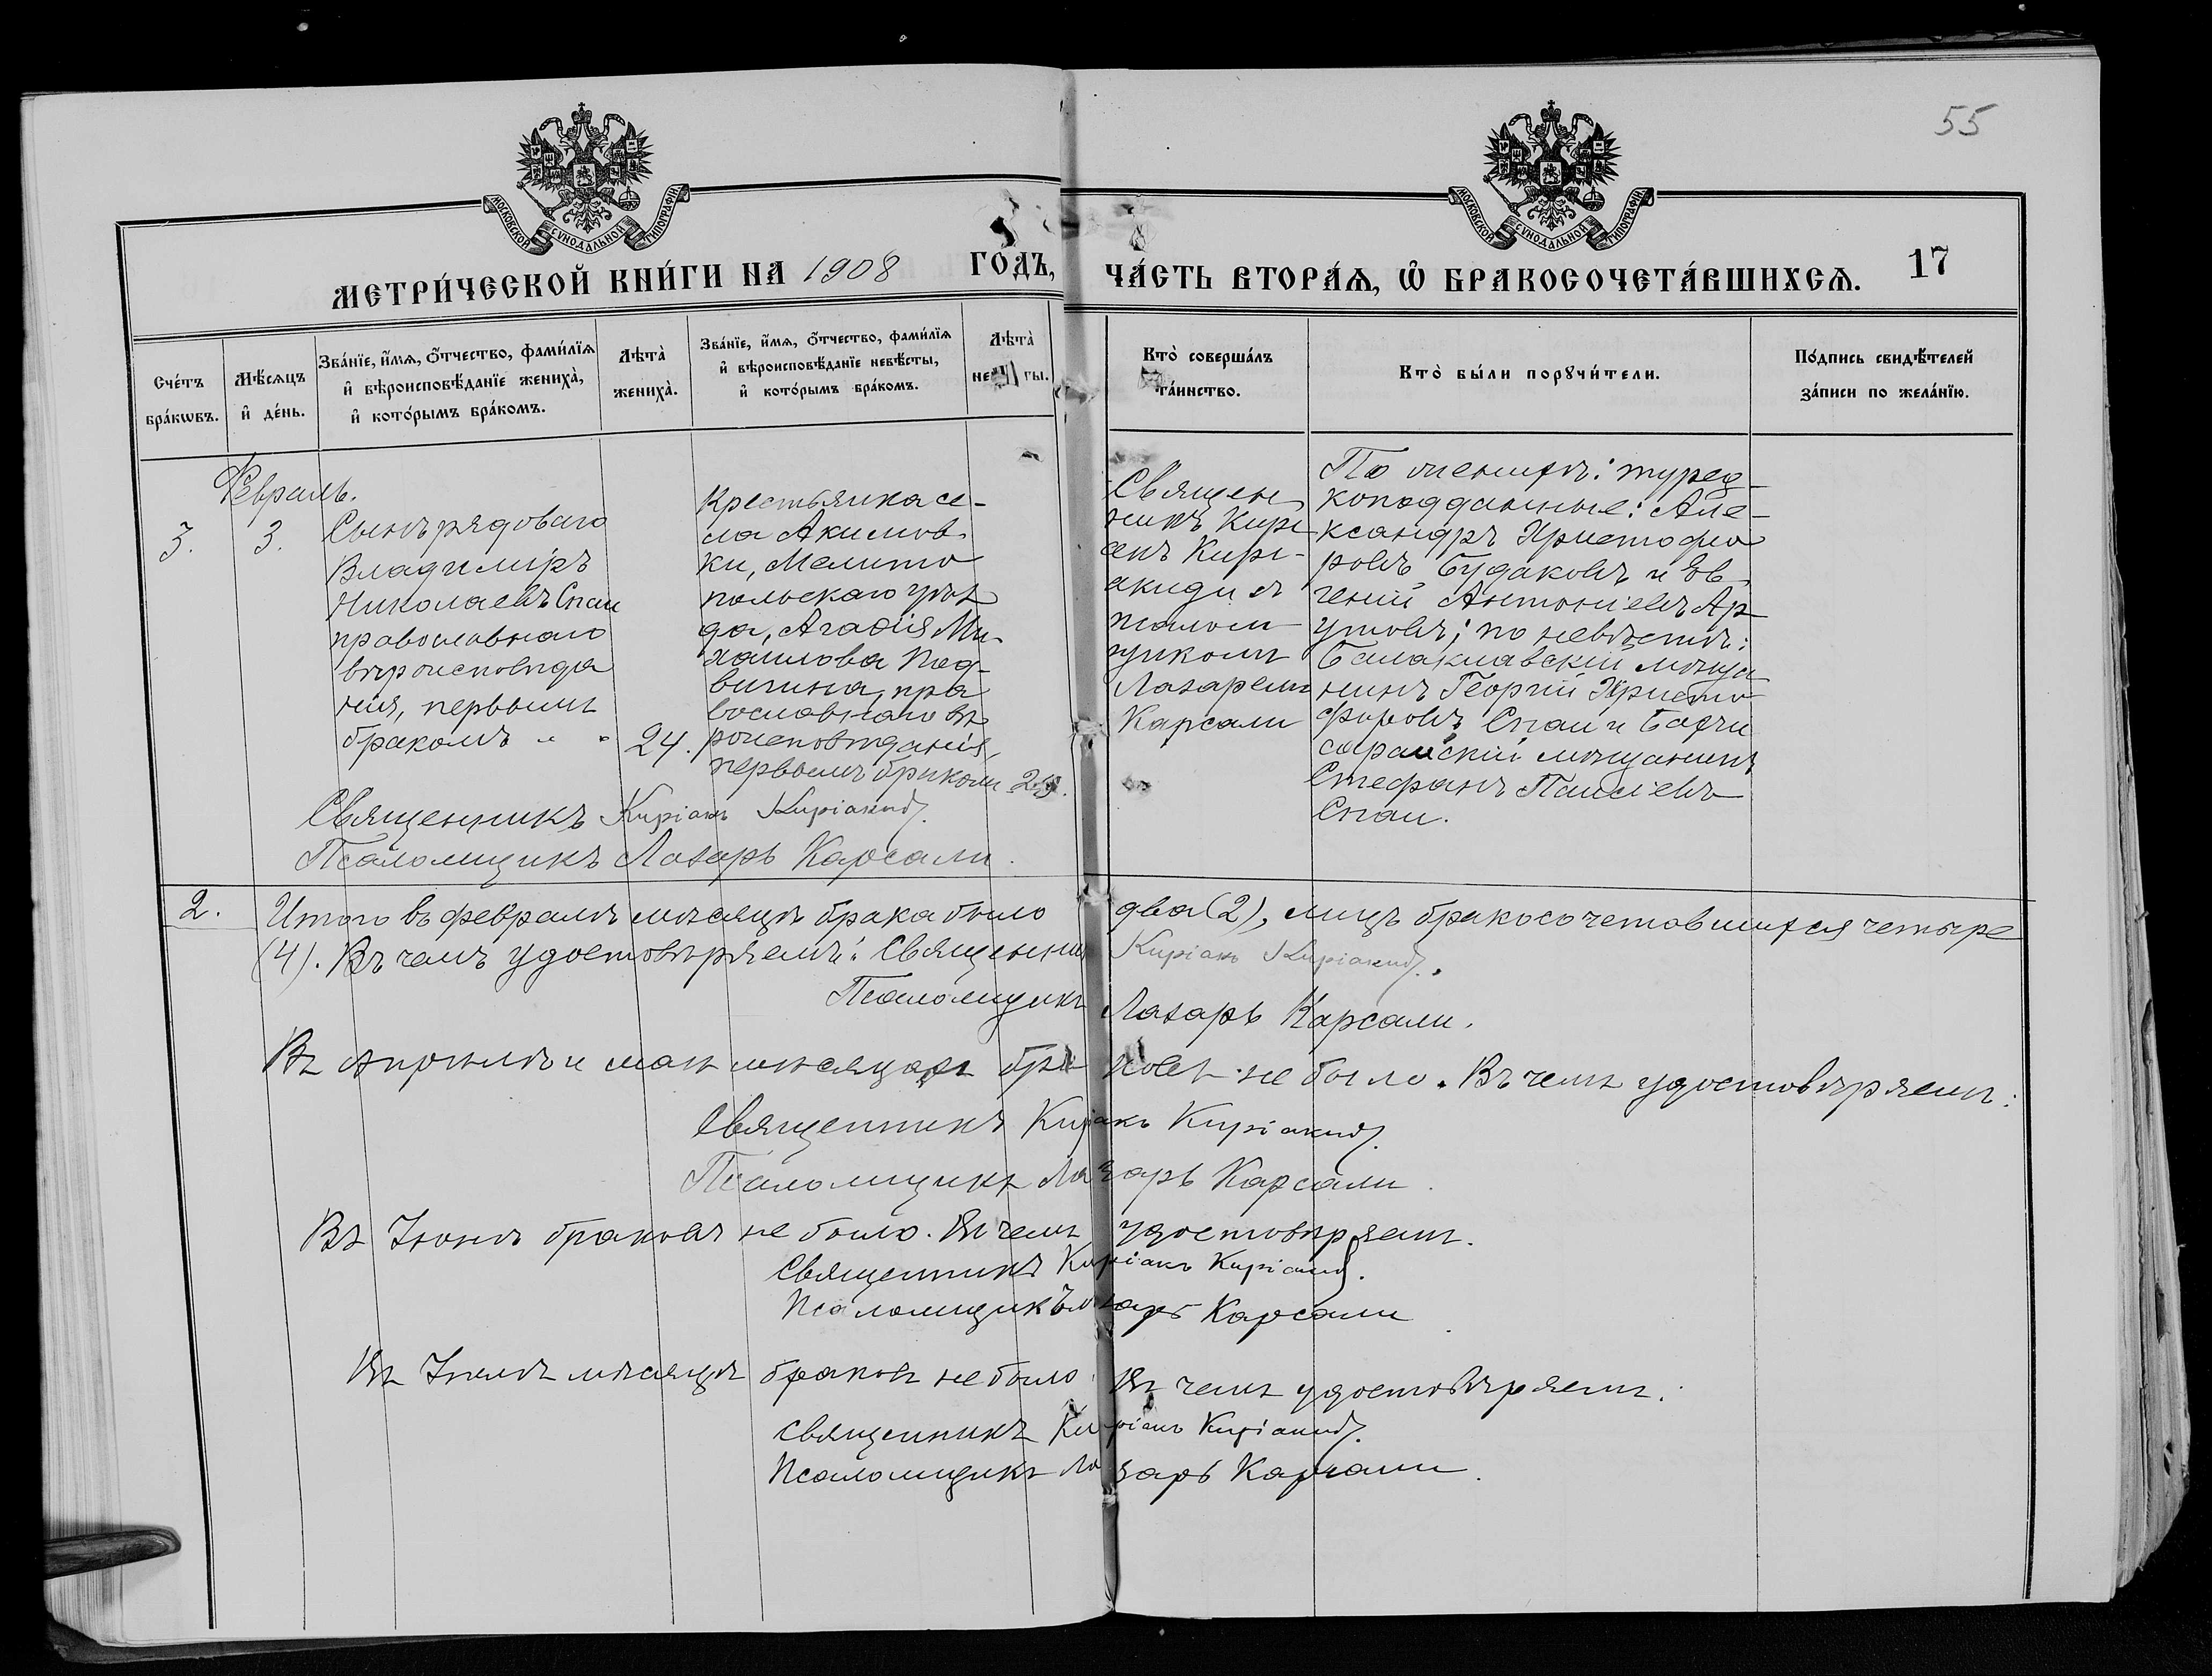 55
МОСКОВСКОЙ СУНОДАЛЬНОЙ ТИПОГРАФІИ
МОСКОВСКОЙ СУНОДАЛЬНОЙ ТИПОГРАФІИ
МЕТРИ́ЧЕСКОЙ КНИ́ГИ НА 1908 ГО́ДЪ,
ЧА́СТЬ ВТОРА́Ѧ, Ѡ҆ БРАКОСОЧЕТА́ВШИХСѦ. 17
Сче́тъ
бра́кѡвъ.
Мѣ́сѧцъ
и҆ де́нь.
Зва́нїе, и҆́мѧ, ѻ҆́тчество, фами́лїѧ
и҆ вѣроисповѣ́данїе жениха̀,
и҆ кото́рымъ бра́комъ.
Лѣта̀
жениха̀.
Зва́нїе, и҆́мѧ, ѻ҆́тчество, фами́лїѧ
и҆ вѣроисповѣ́данїе невѣ́сты,
и҆ кото́рымъ бра́комъ.
Лѣта̀
не сты.
Кто̀ соверша́лъ
та́инство.
Кто̀ бы́ли порꙋчи́тели.
По́дпись свидѣ́телей
за́писи по жела́нїю.
Февраль.
3.
3.
Сынъ рядоваго
Владиміръ
Николаевъ Спаи
православнаго
вѣроисповѣда
нія, первымъ
бракомъ " "
24.
Крестьянка се-
ла Акимов-
ки, Мелито
польскаго уѣз
да, Агафія Ми-
хайлова Под-
вигина, пра
вославнаго вѣ
роисповѣданія,
первымъ бракомъ
Священ
никъ Кирі
акъ Кирі-
акиди и
псаломи
щикомъ
Лазаремъ
Карсали
По женихѣ: турец-
коподданные: Але-
ксандръ Христофо
ровъ Будаковъ и Ев
геній Антоніевъ Ар
утовъ; по невѣстѣ:
Балаклавскій мѣща
нинъ Георгій Христо
форовъ Спаи и Бахчи
сарайскій мѣщанинъ
Стефанъ Паисіевъ
Спаи.
Священникъ Киріакъ Киріакиди.
Псаломщикъ Лазарь Карсали.
2. Итого въ февралѣ мѣсяцѣ брака было два (2), лицъ бракосочетавшихся четыре
(4). Въ чемъ удостовѣряемъ: Священникъ Киріакъ Киріакиди.
Псаломщикъ Лазарь Карсали.
Въ Апрѣлѣ и маѣ мѣсяцахъ браковъ не было. Въ чемъ удостовѣряемъ:
Священникъ Киріакъ Киріакиди.
Псаломщикъ Лазарь Карсали.
Въ Іюнѣ браковъ не было. Въ чемъ удостовѣряемъ.
Священникъ Киріакъ Киріакиди.
Псаломщикъ Лазарь Карсали
Въ Іюлѣ мѣсяцѣ браковъ не было. Въ чемъ удостовѣряемъ:
Священникъ Киріакъ Киріакиди.
Псаломщикъ Лазарь Карсали.